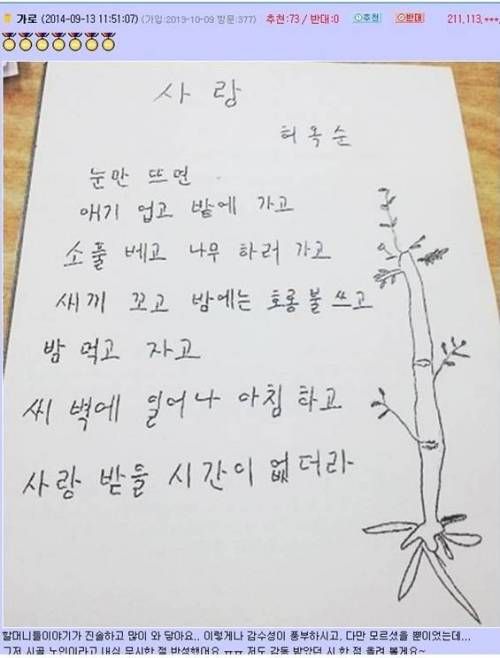 가로 (2014-09-13 11:51:07) (가입:2013-10-09 방문:377) 추천:73 / 반대:0 추천 반대 211.113.***.
사랑
허옥순
눈만 뜨면
애기 업고 밭에 가고
소풀 베고 나무 하러 가고
새끼 꼬고 밤에는 호롱불 쓰고
밤 먹고 자고
씨벽에 일어나 아침 하고
사랑 받을 시간이 없더라
할머니들이야기가 진솔하고 많이 와 닿아요.. 이렇게나 감수성이 풍부하시고, 다만 모르셨을 뿐이었는데...
그저 시골 노인이라고 내심 무시한 점 반성했어요 ㅠㅠ 저도 감동 받았던 시 한 점 올려 볼게요~